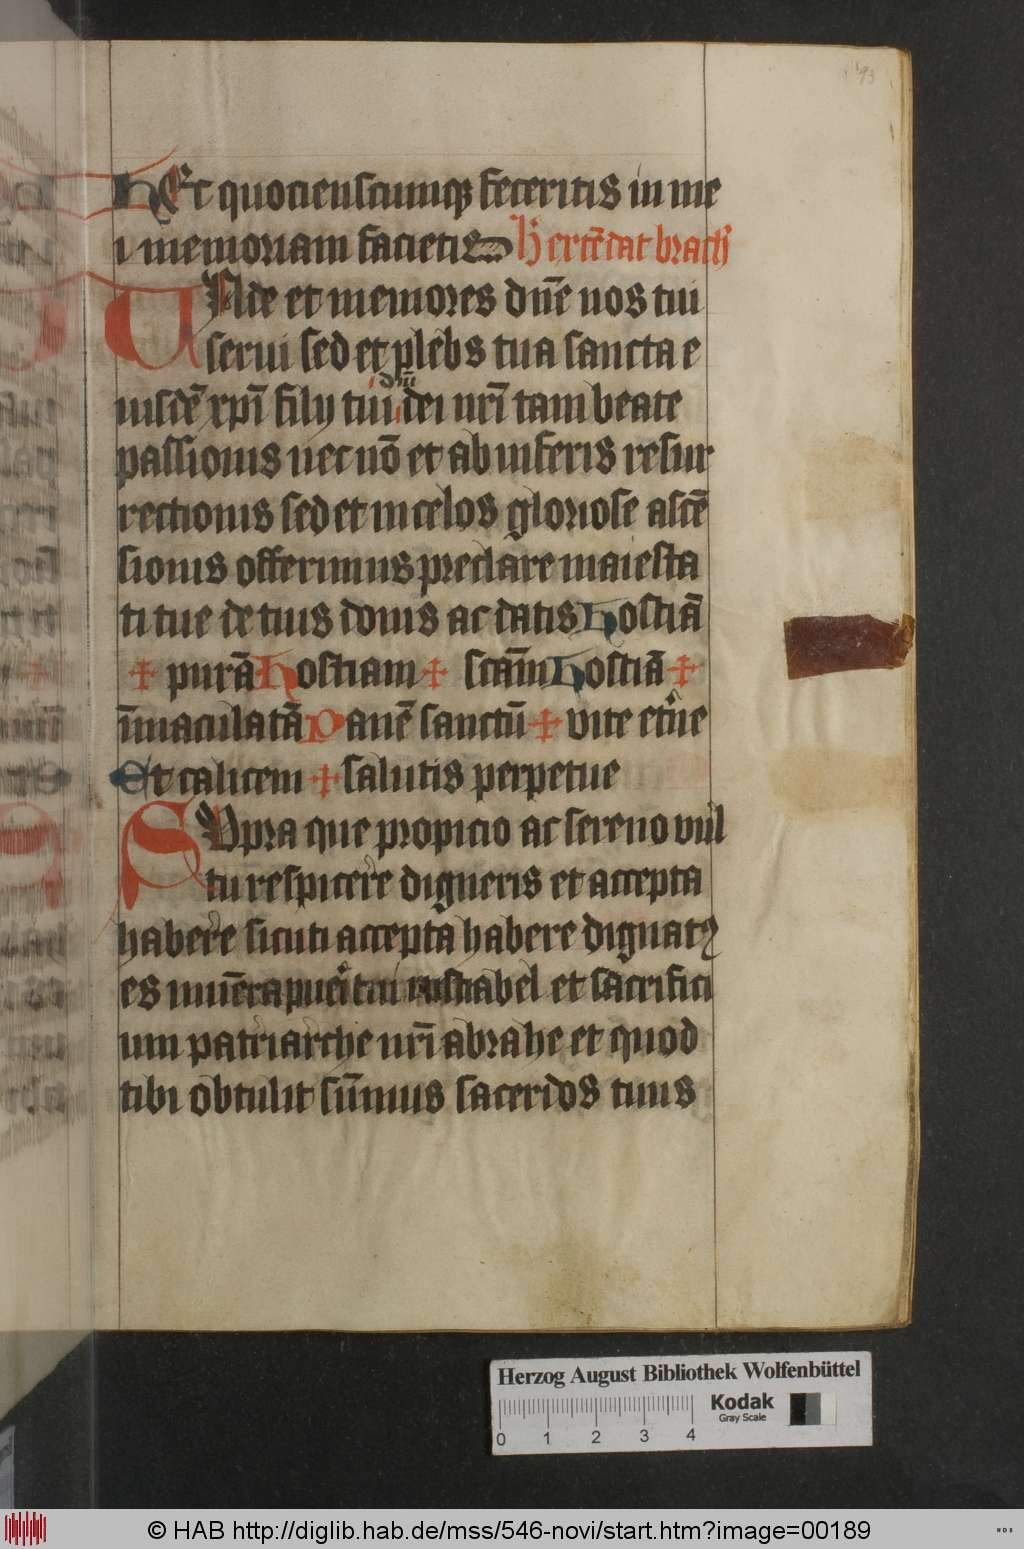 193
hEc quocienscumqꝫ feceritis in me
i memoriam facietis hic extēdat brach̄
UNde et memores dn̄e nos tui
serui sed et plebs tua sancta e
iusdē xpī filij tui dn̄i dei nr̄i tam beate
passionis necnō et ab inferis resur
rectionis sed et in celos gloriose ascē
sionis offerimus preclare maiesta
ti tue de tuis donis ac datis hostiā
✝ purā hostiam ✝ scām hostiā ✝
īmaculatā Panē sanctū ✝ vite et̄ne
Et calicem ✝ salutis perpetue
SUpra que propicio ac sereno vul
tu respicere digneris et accepta
habere sicuti accepta habere dignatꝰ
es munera pueri tui iusti abel et sacrifici
um patriarche nr̄i abrahe et quod
tibi obtulit sūmus sacerdos tuus
Herzog August Bibliothek Wolfenbüttel
Kodak
Gray Scale
0 1 2 3 4
© HAB http://diglib.hab.de/mss/546-novi/start.htm?image=00189